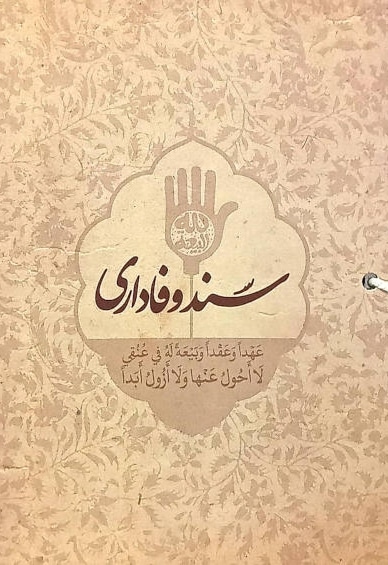 سند وفاداری
عَهْداً وَعَقْداً وَبَيْعَةً لَهُ فِي عُنُقِي
لَا أَحُولُ عَنْهَا وَلَا أَزُولُ أَبَداً